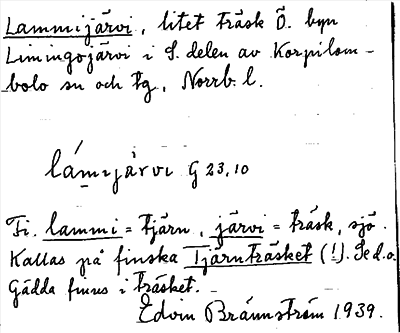 Lammijärvi, litet träsk Ö. byn
Limingojärvi i S. delen av Korpilom-
bolo sn och tg, Norrb. l.
lámijärvi G 23,10
Fi. lammi = tjärn, järvi = träsk, sjö.
Kallas på finska Tjärnträsket (!). Se d.o.
Gädda finns i träsket.
Edvin Brännström 1939.